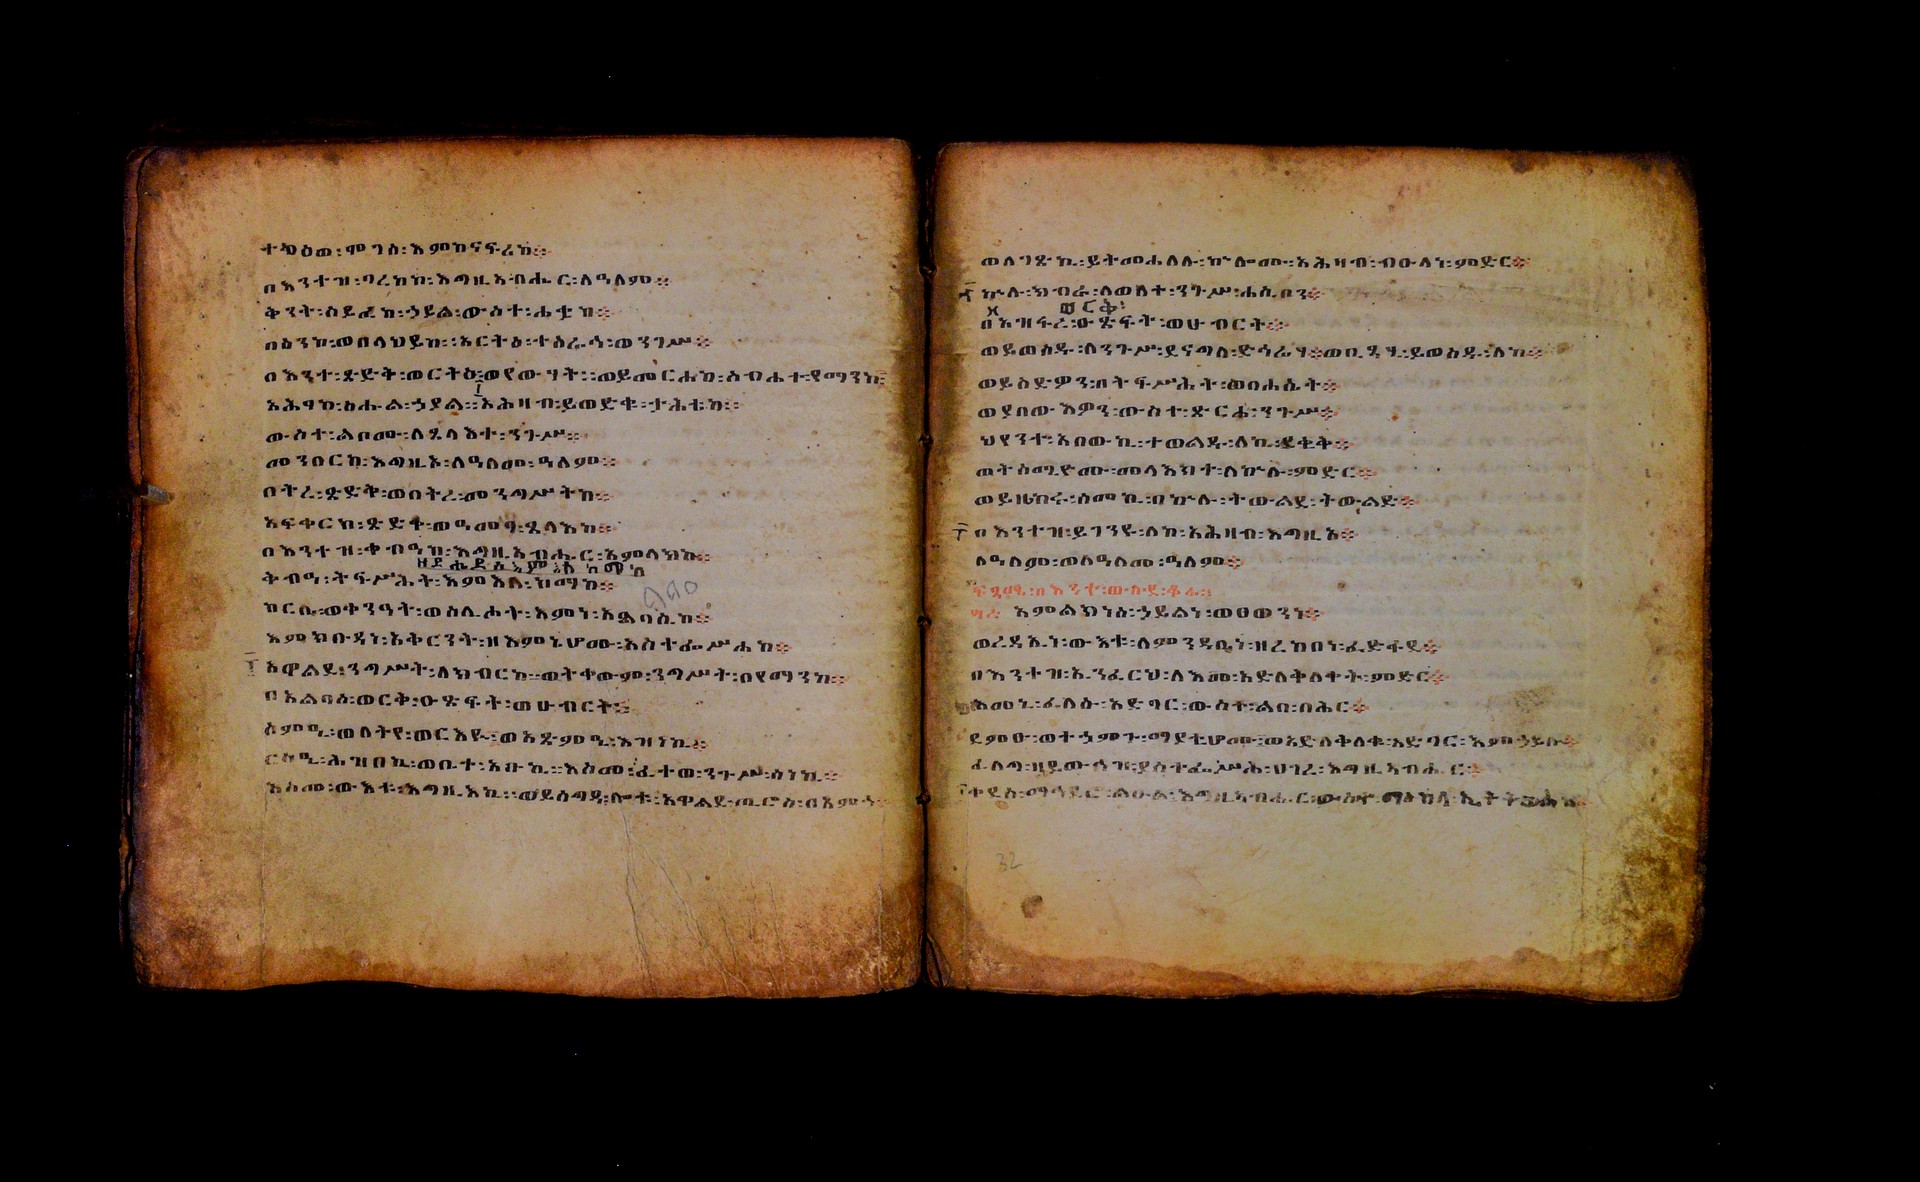 ተክዕወ፡ሞገስ፡እምከናፍሪከ።
በእንተዝ፡ባረከከ፡እግዚአብሔር፡ለዓለም።
ቅንት፡ሰይፈከ፡ኃይል፡ውስተ፡ሐቌከ።
በሥንከ፡ወበላህይከ፡አርትዕ፡ተሰራሕ፡ወንገሥ።
በእንተ፡ጽድቅ፡ወርትዕ፡ወየውሃት፡ወይመርሐከ፡ስብሐተ፡የማንከ፡
አሕፃከ፡ስሑል፡ኃያል፡አሕዛብ፡ይወድቁ፡ታሕቴከ።
ውስተ፡ልቦሙ፡ለጸላእተ፡ንጉሥ።
መንበርከ፡እግዚኦ፡ለዓለመ፡ዓለም።
በትረ፡ጽድቅ፡ወበትረ፡መንግሥትከ።
አፍቀርከ፡ጽድቀ፡ወዓመፃ፡ጸላእከ።
በእንተዝ፡ቀብዓከ፡እግዚአብሔር፡አምላክከ።
ቅብዓ፡ትፍሥሕት፡እምእለ፡ከማከ።
ከርቤ፡ወቀንዓት፡ወስሊሖት፡እምነ፡አልባሲከ።
እምክቡዳነ፡አቅርንት፡ዘእምኔሆሙ፡አስተፌሥሐከ።
አዋልደ፡ንግሥት፡ለክብርከ፡ወትቀውም፡ንግሥት፡በየማንከ።
በአልባሰ፡ወርቅ፡ዑጽፍት፡ወሁብርት።
ስምዒ፡ወለትየ፡ወርእዪ፡ወአጽምዒ፡እዝነኪ።
ርስዒ፡ሕዝበኪ፡ወቤተ፡አቡኪ፡እስመ፡ፈተወ፡ንጉሥ፡ስነኪ።
እስመ፡ውእቱ፡እግዚእኪ፡ወይሰግዳ፡ሎቱ፡አዋልደ፡ጢሮስ፡በአምኃ፡
ወለገጽኪ፡ይትመሐለሉ፡ኵሎሙ፡አሕዛብ፡ብዑላነ፡ምድር።
ኵሉ፡ክብራ፡ለወለተ፡ንጉሥ፡ሐሴቦን።
ወርቅ፡
በአዝፋረ፡ዑጽፍት፡ወሁብርት።
ወይወስዱ፡ለንጉሥ፡ደናግለ፡ድኅሬሃ።ወቢጺሃ፡ይወስዱ፡ለከ።
ወይስድዎን፡በትፍሥሕት፡ወበሐሴት።
ወያበውእዎን፡ውስተ፡ጽርሐ፡ንጉሥ።
ህየንተ፡አበውኪ፡ተወልዱ፡ለኪ፡ደቂቅ።
ወትሰሚዮሙ፡መላእክተ፡ለኵሉ፡ምድር።
ወይዘከሩ፡ስመኪ፡በኵሉ፡ትውልደ፡ትውልድ።
በእንተዝ፡ይገንዩ፡ለከ፡አሕዛብ፡እግዚኦ።
ለዓለም፡ወለዓለመ፡ዓለም።
አምላክነሰ፡ኃይልነ፡ወፀወንነ።
ወረዳኢነ፡ውእቱ፡ለምንዳቤነ፡ዘረከበነ፡ፈድፋደ።
በእንተዝ፡ኢንፈርህ፡ለእመ፡አድለቅለቀት፡ምድር።
እመኒ፡ፈለሱ፡አድባር፡ውስተ፡ልበ፡በሕር።
ደምፁ፡ወተኃምጉ፡ማያቲሆሙ፡ወአድለቅለቁ፡አድባር፡እምኃይሉ።
ፈለግ፡ዘይውኅዝ፡ያስተፌሥሕ፡ሀገረ፡እግዚአብሔር።
ቀደሰ፡ማኅደሮ፡ልዑል፡እግዚአብሔር፡ውስተ፡ማእከላ፡ኢትትሀወክ።
32